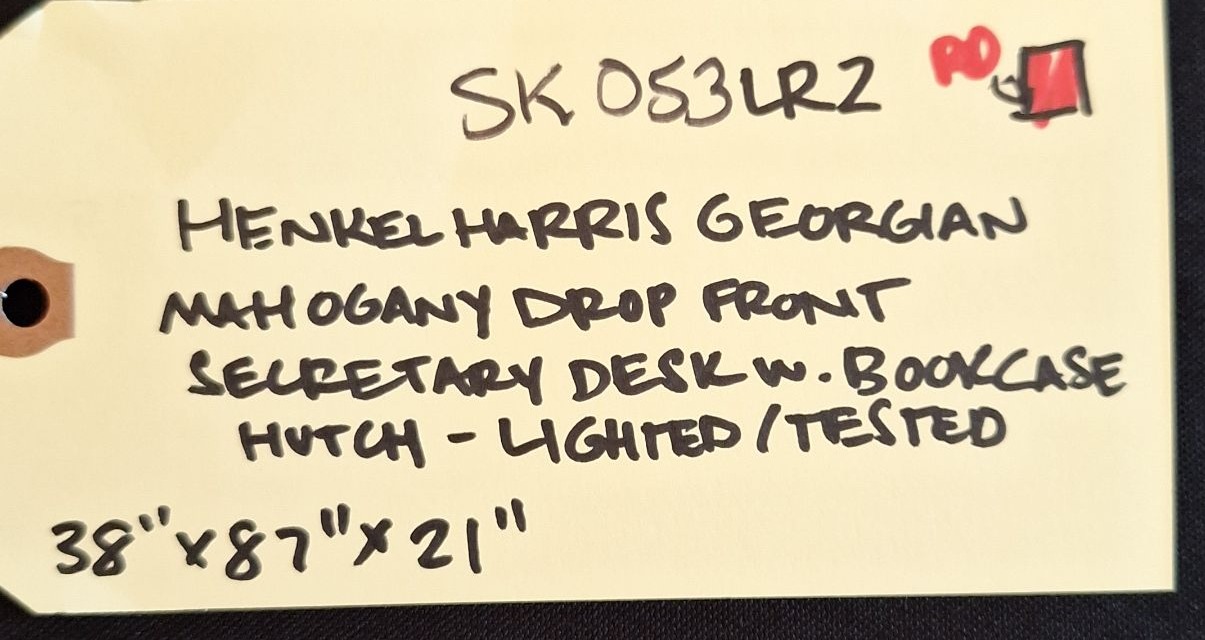 SK 053LR2
HENKEL HARRIS GEORGIAN
MAHOGANY DROP FRONT
SECRETARY DESK W. BOOKCASE
HUTCH - LIGHTED/TESTED
38"x87"x21"